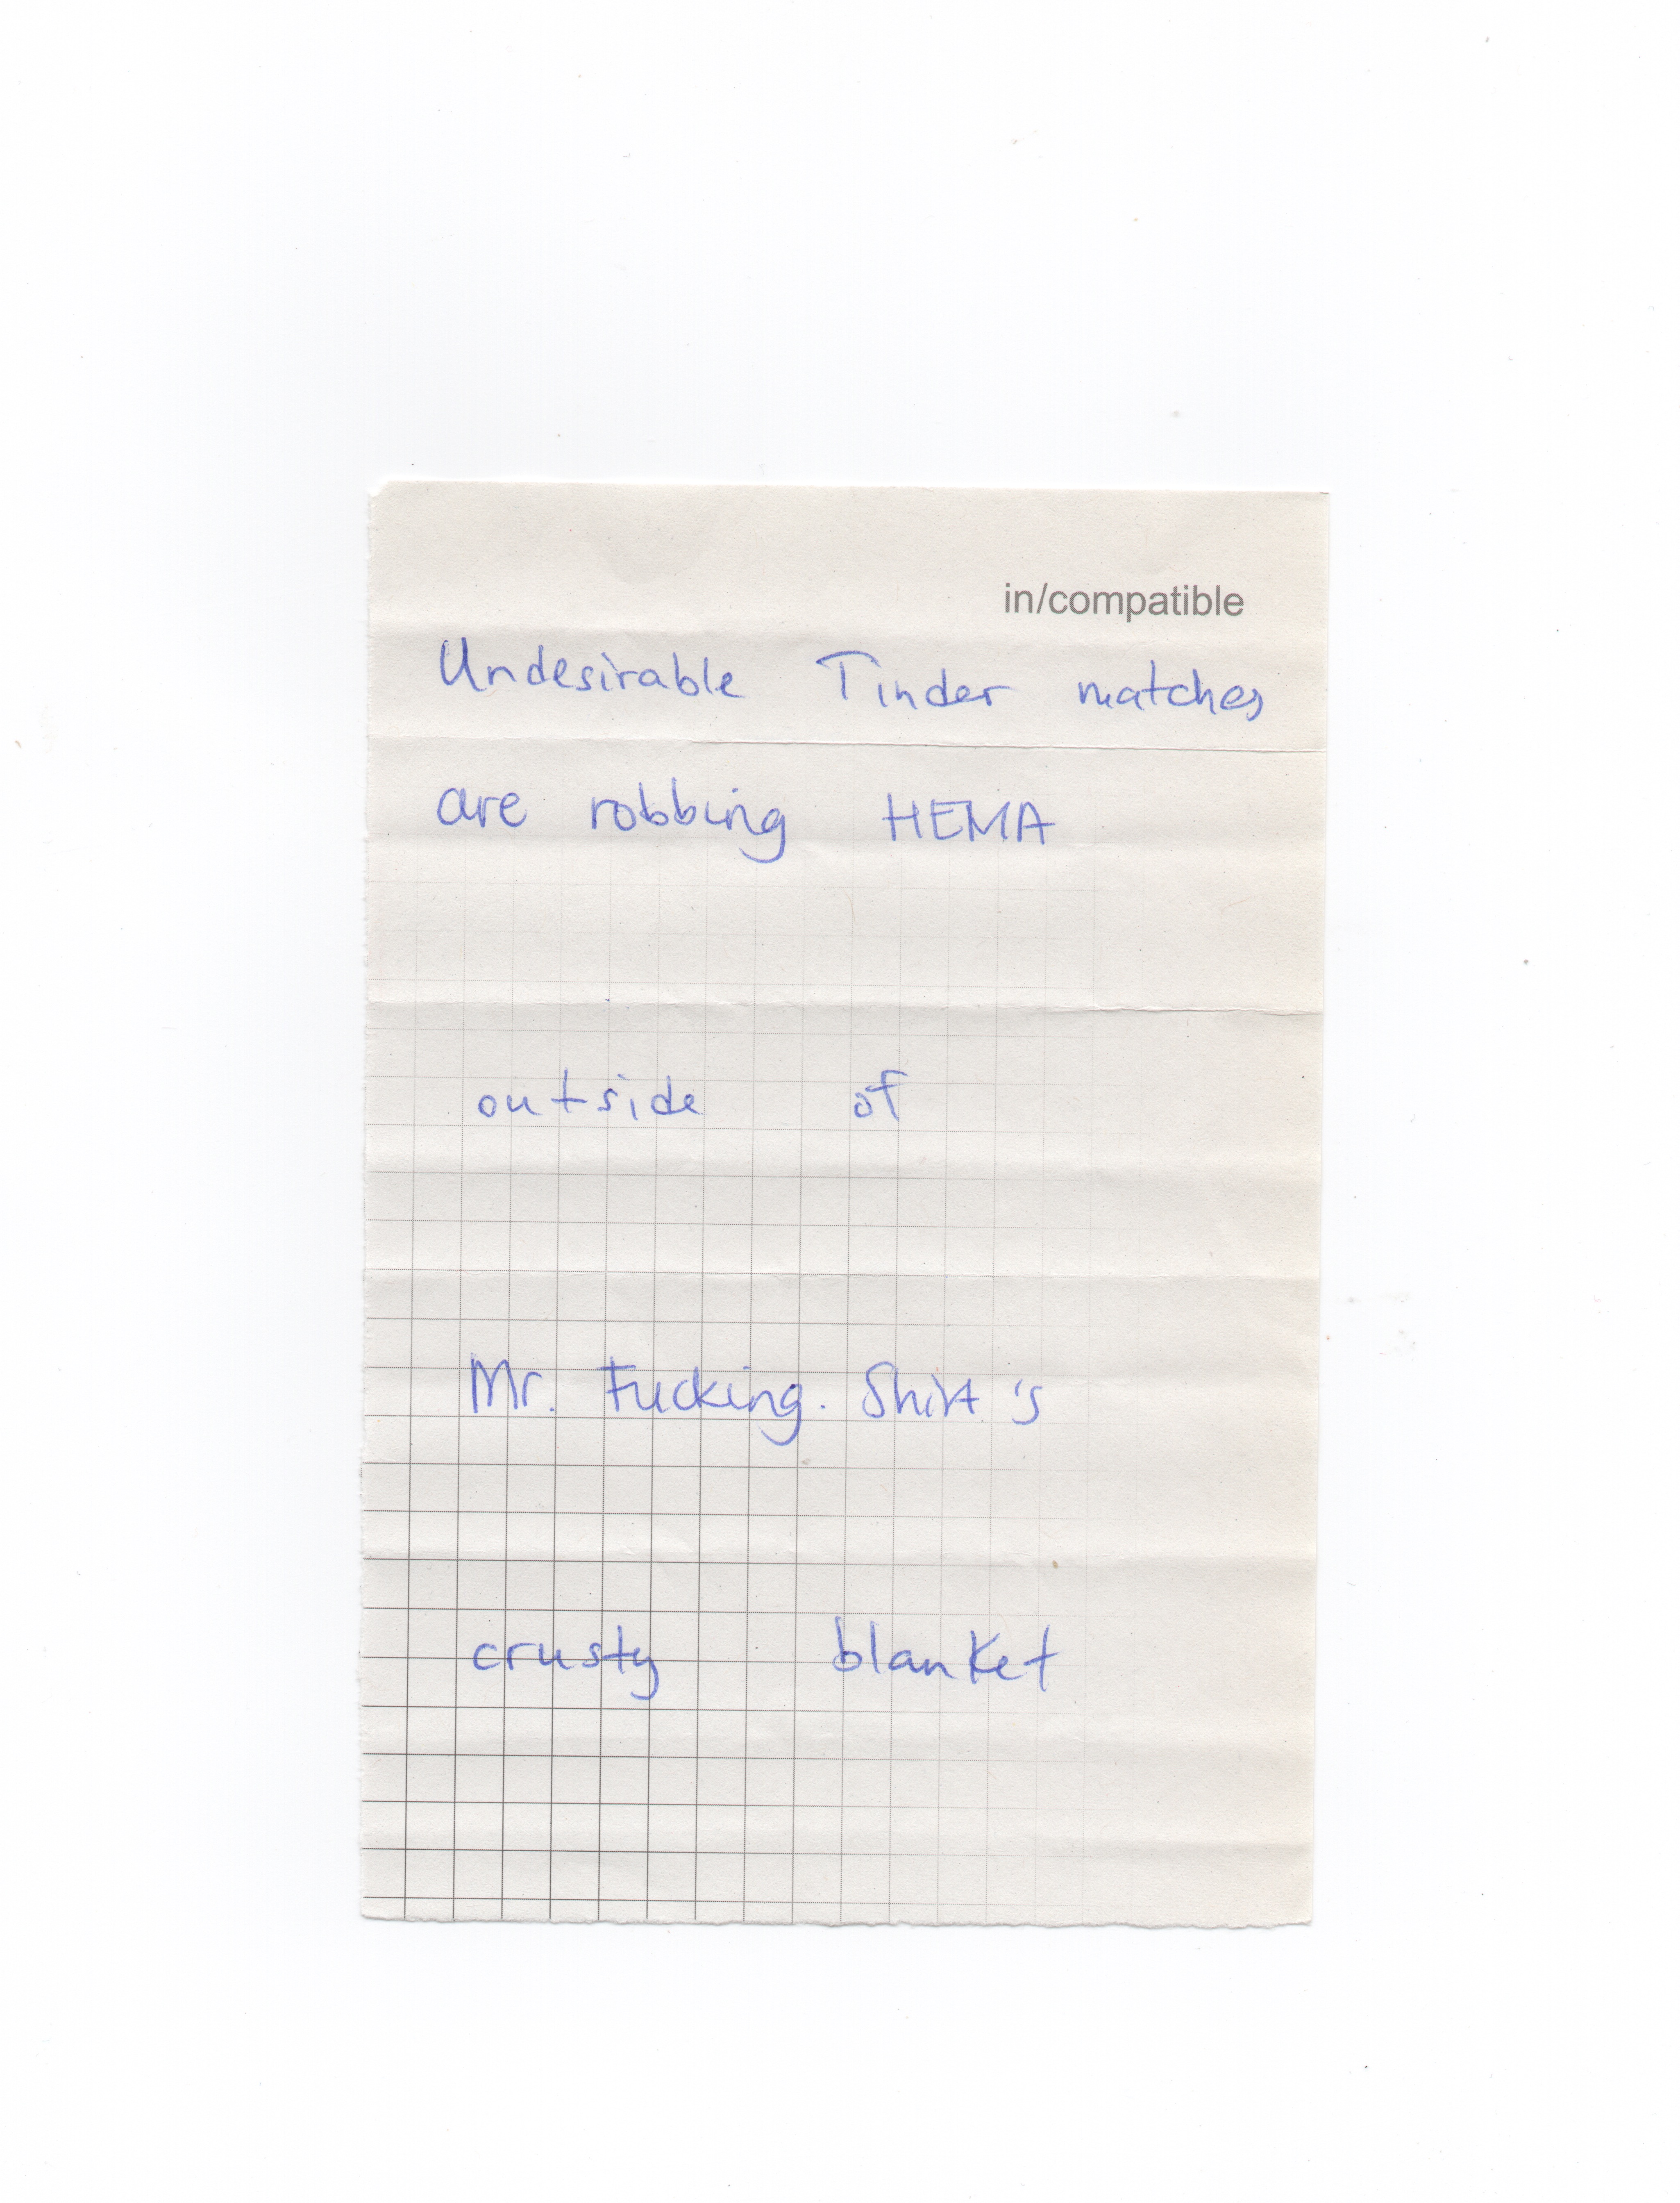 in/compatible
Undesirable Tinder matches
are robbing HEMA
outside of
Mr. Fucking. Shirt's
crusty blanket